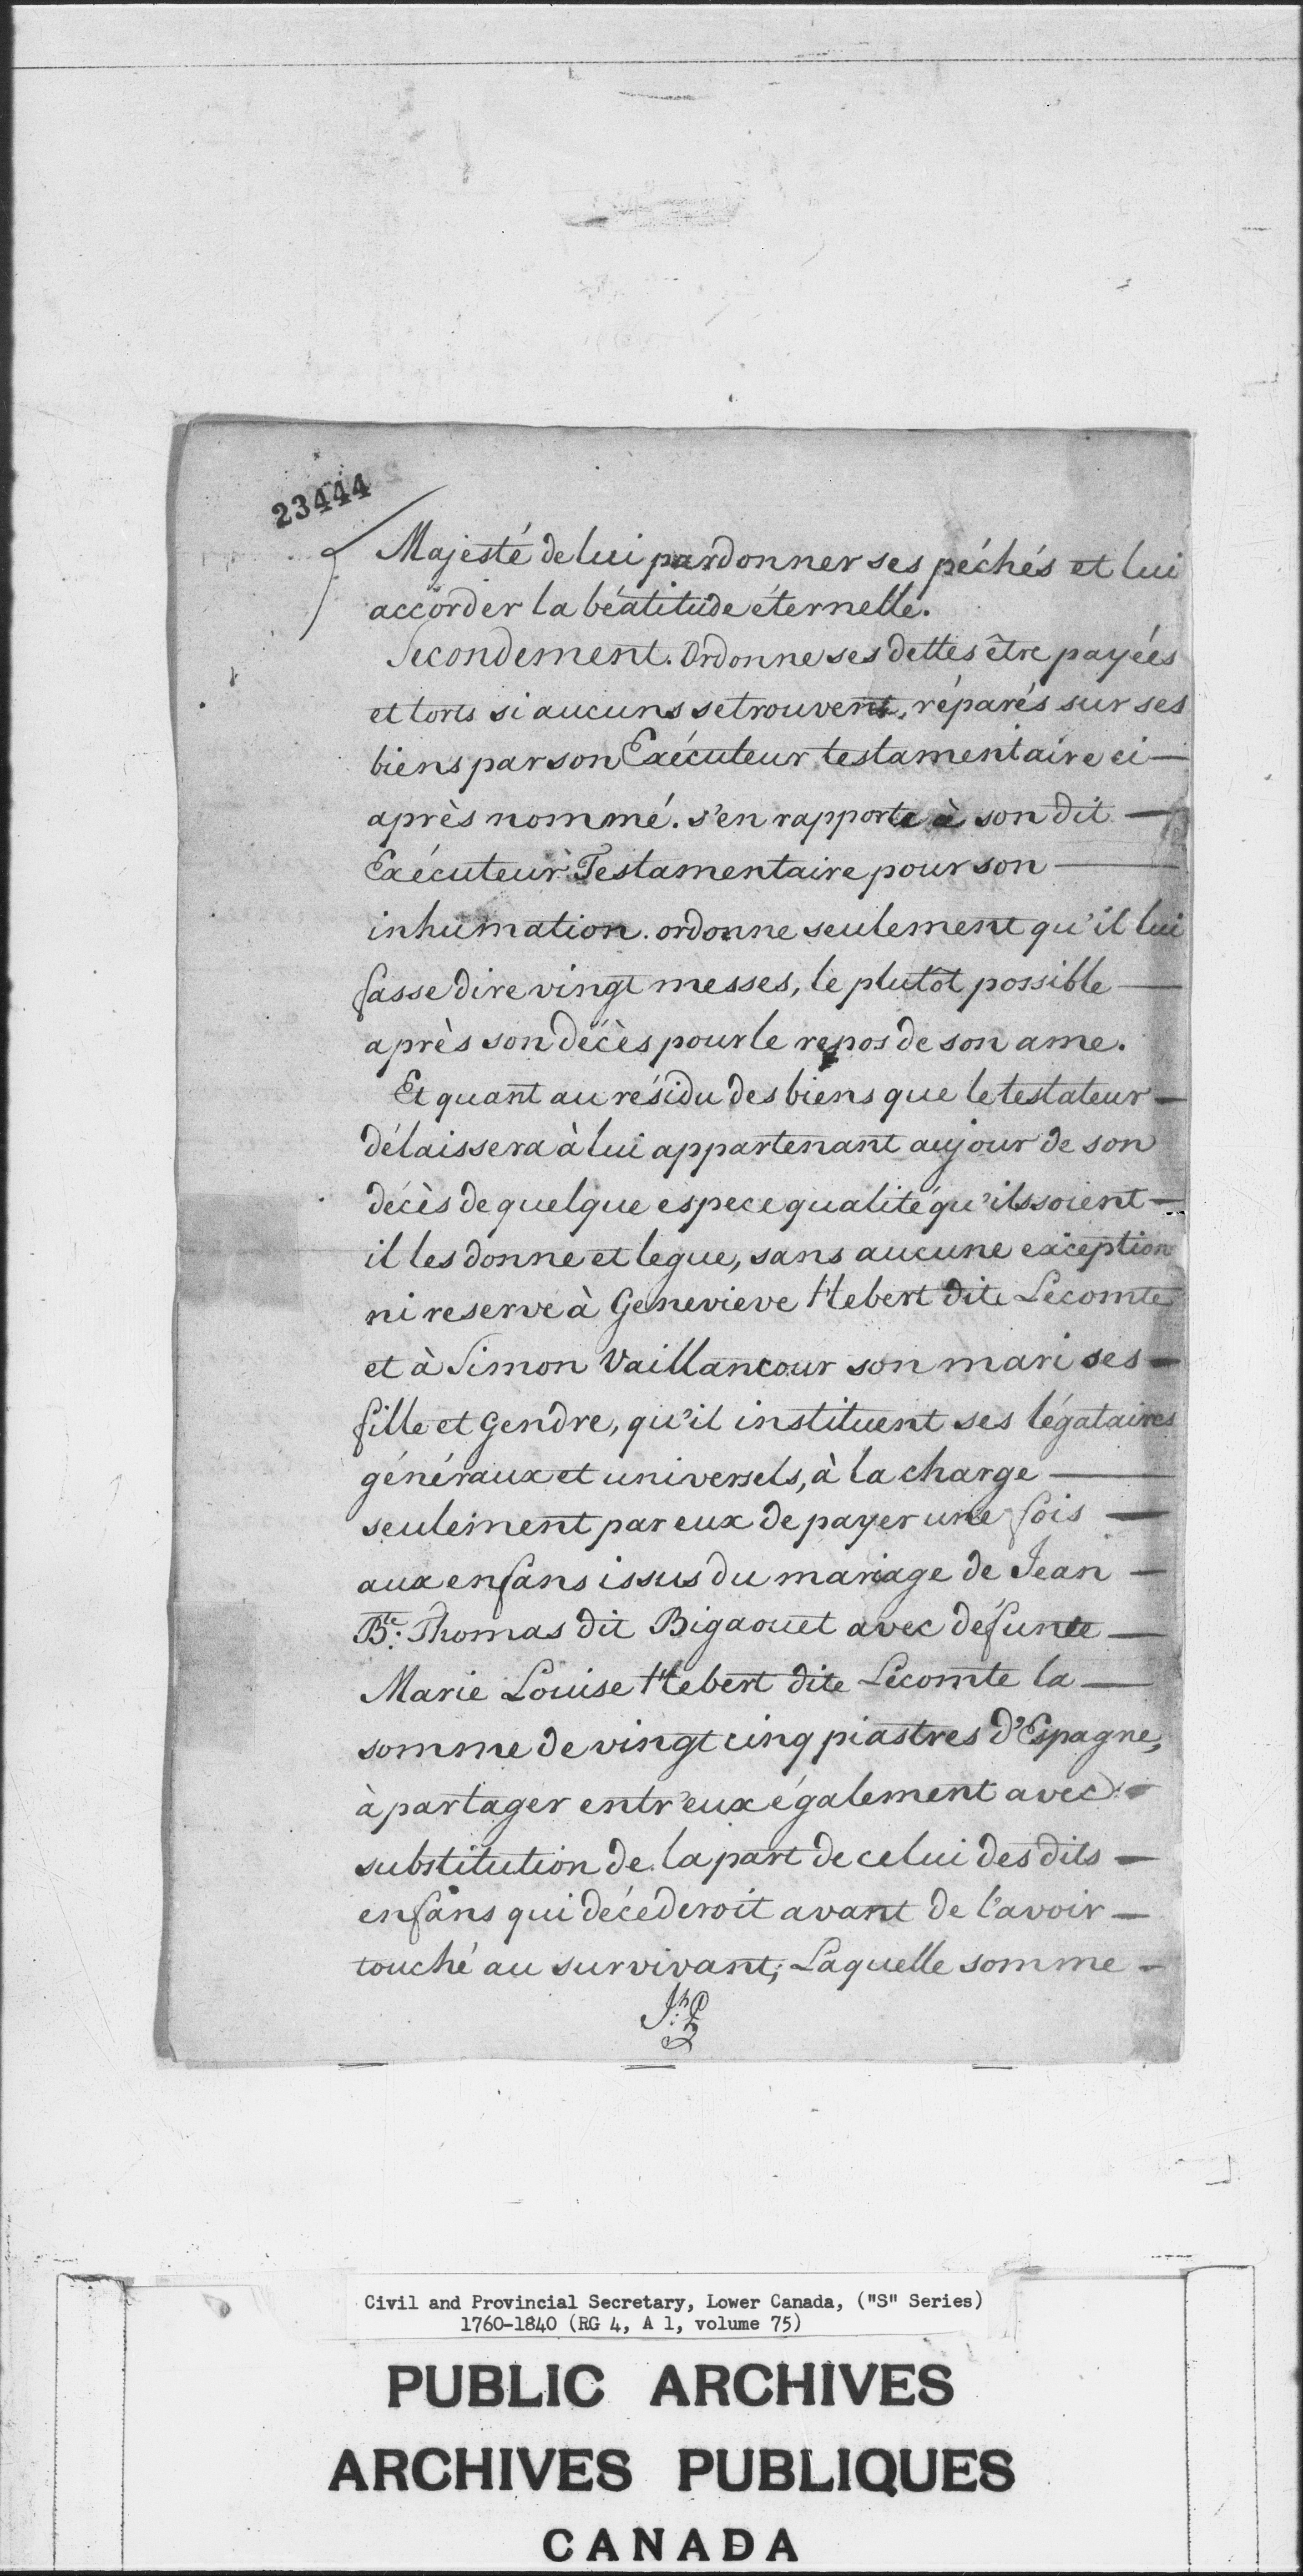 23444
Majesté de lui pardonner ses péchés et lui
accorder la béatitude éternelle.
Secondement. Ordonne ses dettes être payées
et torts si aucuns se trouvent, réparés sur ses
biens par son Exécuteur testamentaire ci —
après nommé. s'en rapporte à son dit —
Exécuteur Testamentaire pour son —
inhumation. ordonne seulement qu'il lui
fasse dire vingt messes, le plutôt possible —
après son décès pour le repos de son ame.
Et quant au résidu des biens que le testateur —
délaissera à lui appartenant au jour de son
décès de quelque espece qualité qu'ils soient —
il les donne et legue, sans aucune exception
ni reserve à Genevieve Hebert dite Lecomte
et à Simon Vaillancour son mari ses —
fille et Gendre, qu'il instituent ses légataires
généraux et universels, à la charge —
seulement par eux de payer une fois —
aux enfans issus du mariage de Jean —
Bte. Thomas dit Bigaouet avec défunte —
Marie Louise Hebert dite Lecomte la —
somme de vingt cinq piastres d'Espagne,
à partager entr'eux également avec —
substitution de la part de celui des dits —
enfans qui décéderoit avant de l'avoir —
touché au survivant; Laquelle somme —
Civil and Provincial Secretary, Lower Canada, ("S" Series)
1760-1840 (RG 4, A 1, volume 75)
PUBLIC ARCHIVES
ARCHIVES PUBLIQUES
CANADA